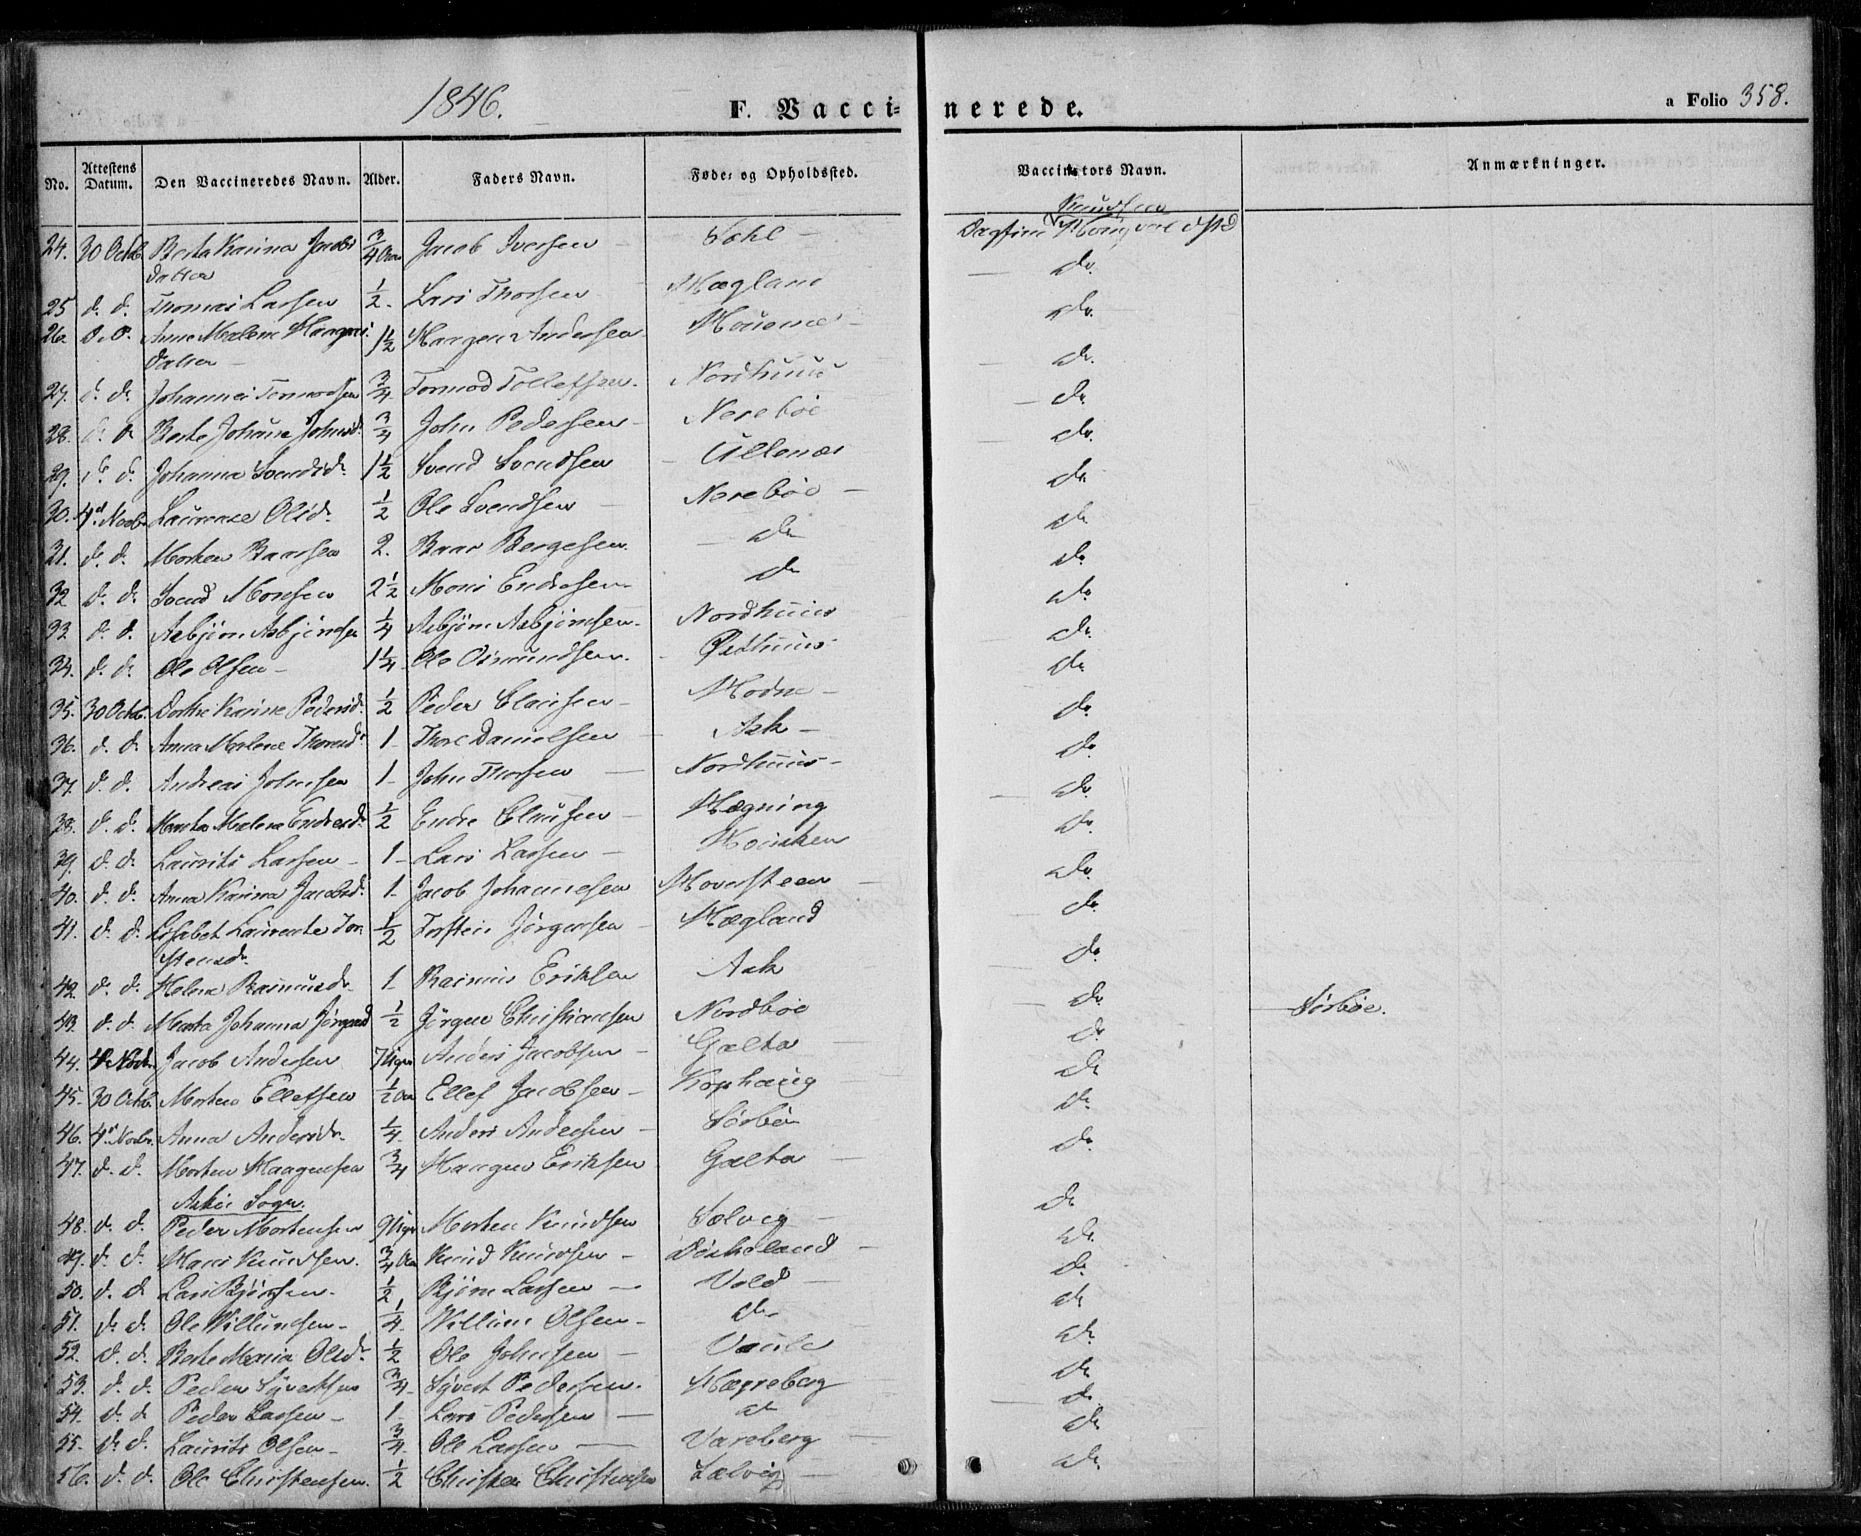 1846. F. Vacci- nerede. a Folio 358.
No. Attestens Datum. Den Vaccineredes Navn. Alder. Faders Navn. Føde- og Opholdssted. Vaccinators Navn. Anmærkninger.
Knudsen
24. 30 Octb. Berta Karina Jacobs datter 3/4 Aar Jacob Iversen Dagfin
25 d. d. Thomas Larsen 1/2 Lars Thorsen Hægland do
26. d. d. Anne Malene Haagens datter 1 1/2 Haagen Andersen do.
27. d. d. Johannes Tormodsen 3/4 Tormod Tollefsen Nordhuus do.
28. d. d. Berte Johanne Johnsd. 3/4 John Pedersen Nerebøe do.
29. d. d. Johanna Svendsd. 1 1/2 Svend Svendsen Ullenæs do.
30. 4de Novbr. Laurence Olsd. 1/2 Ole Svendsen Nerebøe do.
31. d. d. Morten Baarsen 2. Baar Bergesen do do
32 d. d. Svend Monsen 2 1/2 Mons Endresen do do
33. d. d. Asbjørn Asbjørnsen 1/4 Asbjørn Asbjørnsen Nordhuus do
34. d. d. Ole Olsen 1 1/4 Ole Osmundsen Østhuus do
35. 30 Octb. Dorthe Karine Pedersd. 1/2 Peder Clausen Hodne do
36. d. d. Anna Malene Thoresd. 1 Thore Danielsen Ask do
37. d. d. Andreas Johnsen 1 John Thorsen Nordhuus do
38. d. d. Marta Malene Endresd. 1/2 Endre Clausen do
39. d. d. Laurits Larsen 1 Lars Larsen do
40. d. d. Anna Karina Jacobsd. 1 Jacob Johannesen do
41. d. d. Elisabet Laurentse Tor- stensd. 1/2 Torsten Jørgensen Hægland do
42. d. d. Helene Rasmusd. 1 Rasmus Eriksen Ask do
43. d. d. Marta Johanna Jørgensd 1/2 Jørgen Christiansen Nordbøe do Sørbøe.
44. 4de Novbr. Jacob Andersen 7 Uger Anders Jacobsen Galta do
45. 30 Octb. Morten Ellefsen 1/2 Aar Ellef Jacobsen do
46. 4de Novbr. Anna Andersd. 1/4 Anders Andersen Sørbøe do
47. d. d. Morten Haagensen 3/4 Haagen Eriksen Galta do
Askøe Sogn.
48. d. d. Peder Mortensen 9 Uger Morten Knudsen Sølvig do
49. d. d. Hans Knudsen. 3/4 Aar Knud Knudsen do
50. d. d. Lars Bjørnsen 1/2 Bjørn Larsen Vold do
51. d. d. Ole Villumsen 1/4 Villum Olsen do do
52. d. d. Berte Maria Olsd. 1/2 Ole Johnsen Vaula do
53. d. d. Peder Syvertsen 3/4 Syvert Pedersen. Hægreberg do
54. d. d. Peder Larsen 1 Lars Pedersen do do
55. d. d. Laurits Olsen 3/4 Ole Larsen Vareberg do
56. d. d. Ole Christensen. 1/2 Christen Christensen do